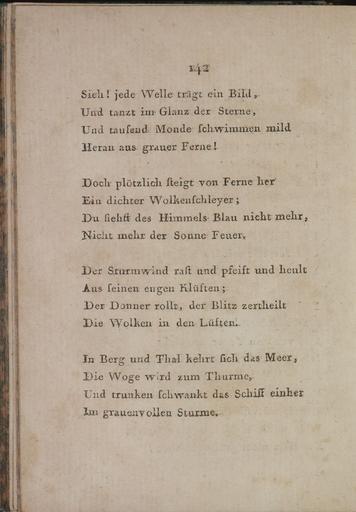 142
Sieh! jede Welle trägt ein Bild,
Und tanzt im Glanz der Sterne,
Und tauſend Monde ſchwimmen mild
Heran aus grauer Ferne!
Doch plötzlich ſteigt von Ferne her
Ein dichter Wolkenſchleyer;
Du ſiehſt des Himmels Blau nicht mehr,
Nicht mehr der Sonne Feuer.
Der Sturmwind raſt und pfeift und heult
Aus ſeinen engen Klüften;
Der Donner rollt, der Blitz zertheilt
Die Wolken in den Lüften.
In Berg und Thal kehrt ſich das Meer,
Die Woge wird zum Thurme,
Und trunken ſchwankt das Schiff einher
Im grauenvollen Sturme.